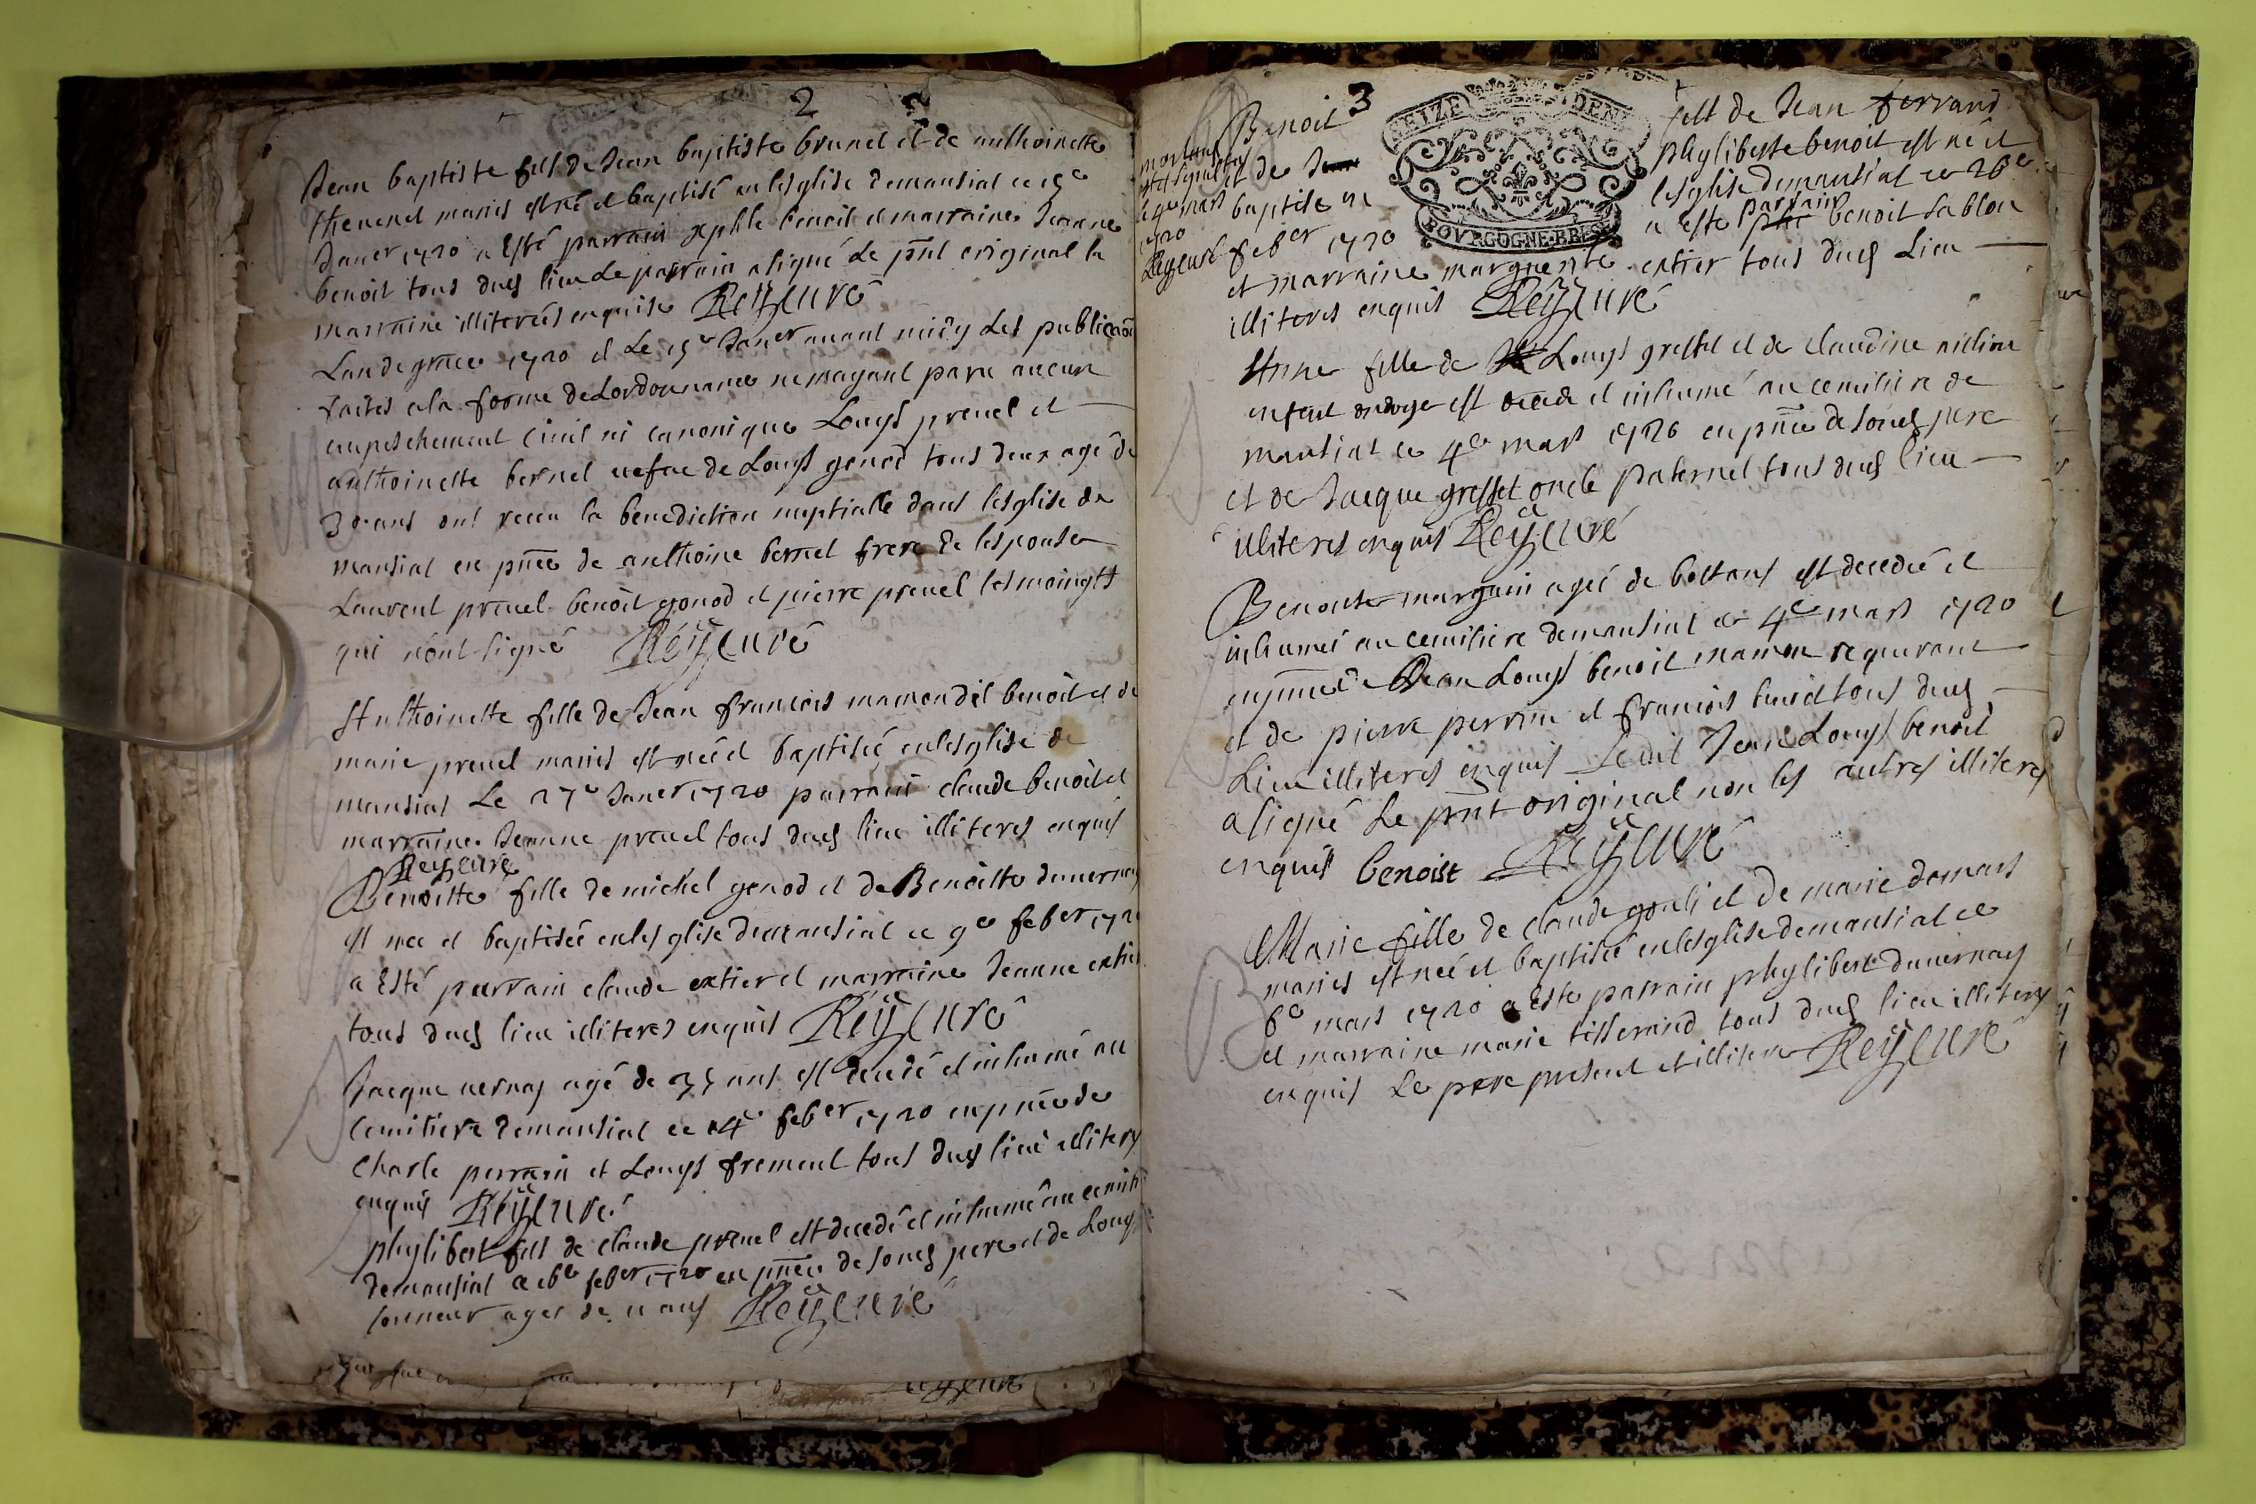 2
Jean baptiste fils de Jean baptiste brunel et de anthoinette
thevenel mariés est né et baptisé en lesglise demansiat ce 15e
Janer 1720 a Esté parrain joseph benoit et marraine Jeanne
benoit tous dud lieu le parrain a signé le pnt original la
marraine illiterées enquise Reÿ curé
Lan de grace 1720 et le 15e Janer avant midy Les publicaõns
faites a la forme de Lordonnance ne mayant paru aucun
empeschement Civil ni canonique Louys prevel et
anthoinette bernel vefve de Louys genod tous deux agé de
30 ans ont receu la benediction nuptialle dans lesglise de
mansiat en pnce de anthoine bernel frere de lespouse
Laurent prevel benoit gonod et pierre prevel tesmoingts
qui n'ont signé Reÿ curé
Anthoinette fille de Jean francois mamon dit benoit et de
marie prevel mariés est née et baptisée en lesglise de
mansiat Le 27e Janer 1720 parrain claude benoit et
marraine Jeanne prevel tous dud lieu illiteres enquis
Reÿ curé
Benoitte fille de michel genod et de Benoitte duvernay
est née et baptisée en lesglise demansiat ce 9e feber 1720
a Esté parrain claude extier et marraine Jeanne extier
tous dud lieu illiteres enquis Reÿ curé
Jacque vernay agé de 35 ans est decedé et inhumé au
Cemitiere demansiat ce 4e feber 1720 en pnce de
Charle perrain et Louys frement tous dud lieu illiteres
enquis Reÿ curé
phylibert fils de claude prevel est decedé et inhumé au cemiti
demansiat ce feber 1720 en pnce de soned pere et de Louys
sonneur ager de 11 ans Reÿ curé
3
SEIZE DEN
BOVRGOGNE BRESSE
Benoit fils de Jean ferrand
et de phyliberte benoit est né et
baptisé en lesglise demansiat ce 26e
feber 1720 a este parrain benoit sablon
et marraine marguerite extier tous dud Lieu
illiteres enquis Reÿ curé
4e mars
1720
Reÿ curé
Anne fille de Louys gresset et de claudine
enfant ondoyé est decedé et inhumé au cemitiere de
mansiat ce 4e mars 1720 en pnce de soned pere
et de Jacque gresset oncle paternel tous dud lieu
illiteres enquis Reÿ curé
Benoite marguin agée de ans est decedée et
inhumée au cemitiere demansiat ce 4e mars 1720
en pnce de Jean Louys benoit mamon requerant
et de pierre perrin et francois tous dud
Lieu illiteres enquis Ledit Jean Louys benoit
a signé Le pnt original non les autres illiteres
enquis benoist Reÿ curé
Marie fille de claude et de marie demars
mariés est née et baptisée en lesglise demansiat ce
6e mars 1720 a este parrain phylibert duvernay
et marraine marie tisserand tous dud lieu illiteres
enquis Le pere present et illitere Reÿ curé